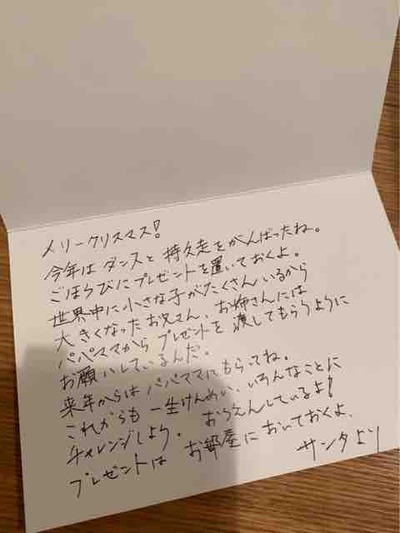 メリークリスマス!
今年はダンスと持久走をがんばったね。
ごほうびにプレゼントを置いておくよ。
世界中に小さな子がたくさんいるから
大きくなったお兄さん、お姉さんには
パパママからプレゼントを渡してもらうように
お願いしているんだ。
来年からはパパママにもらってね。
これからも一生けんめい、いろんなことに
チャレンジしよう。おうえんしているよ!
プレゼントはお部屋においておくよ、
サンタより